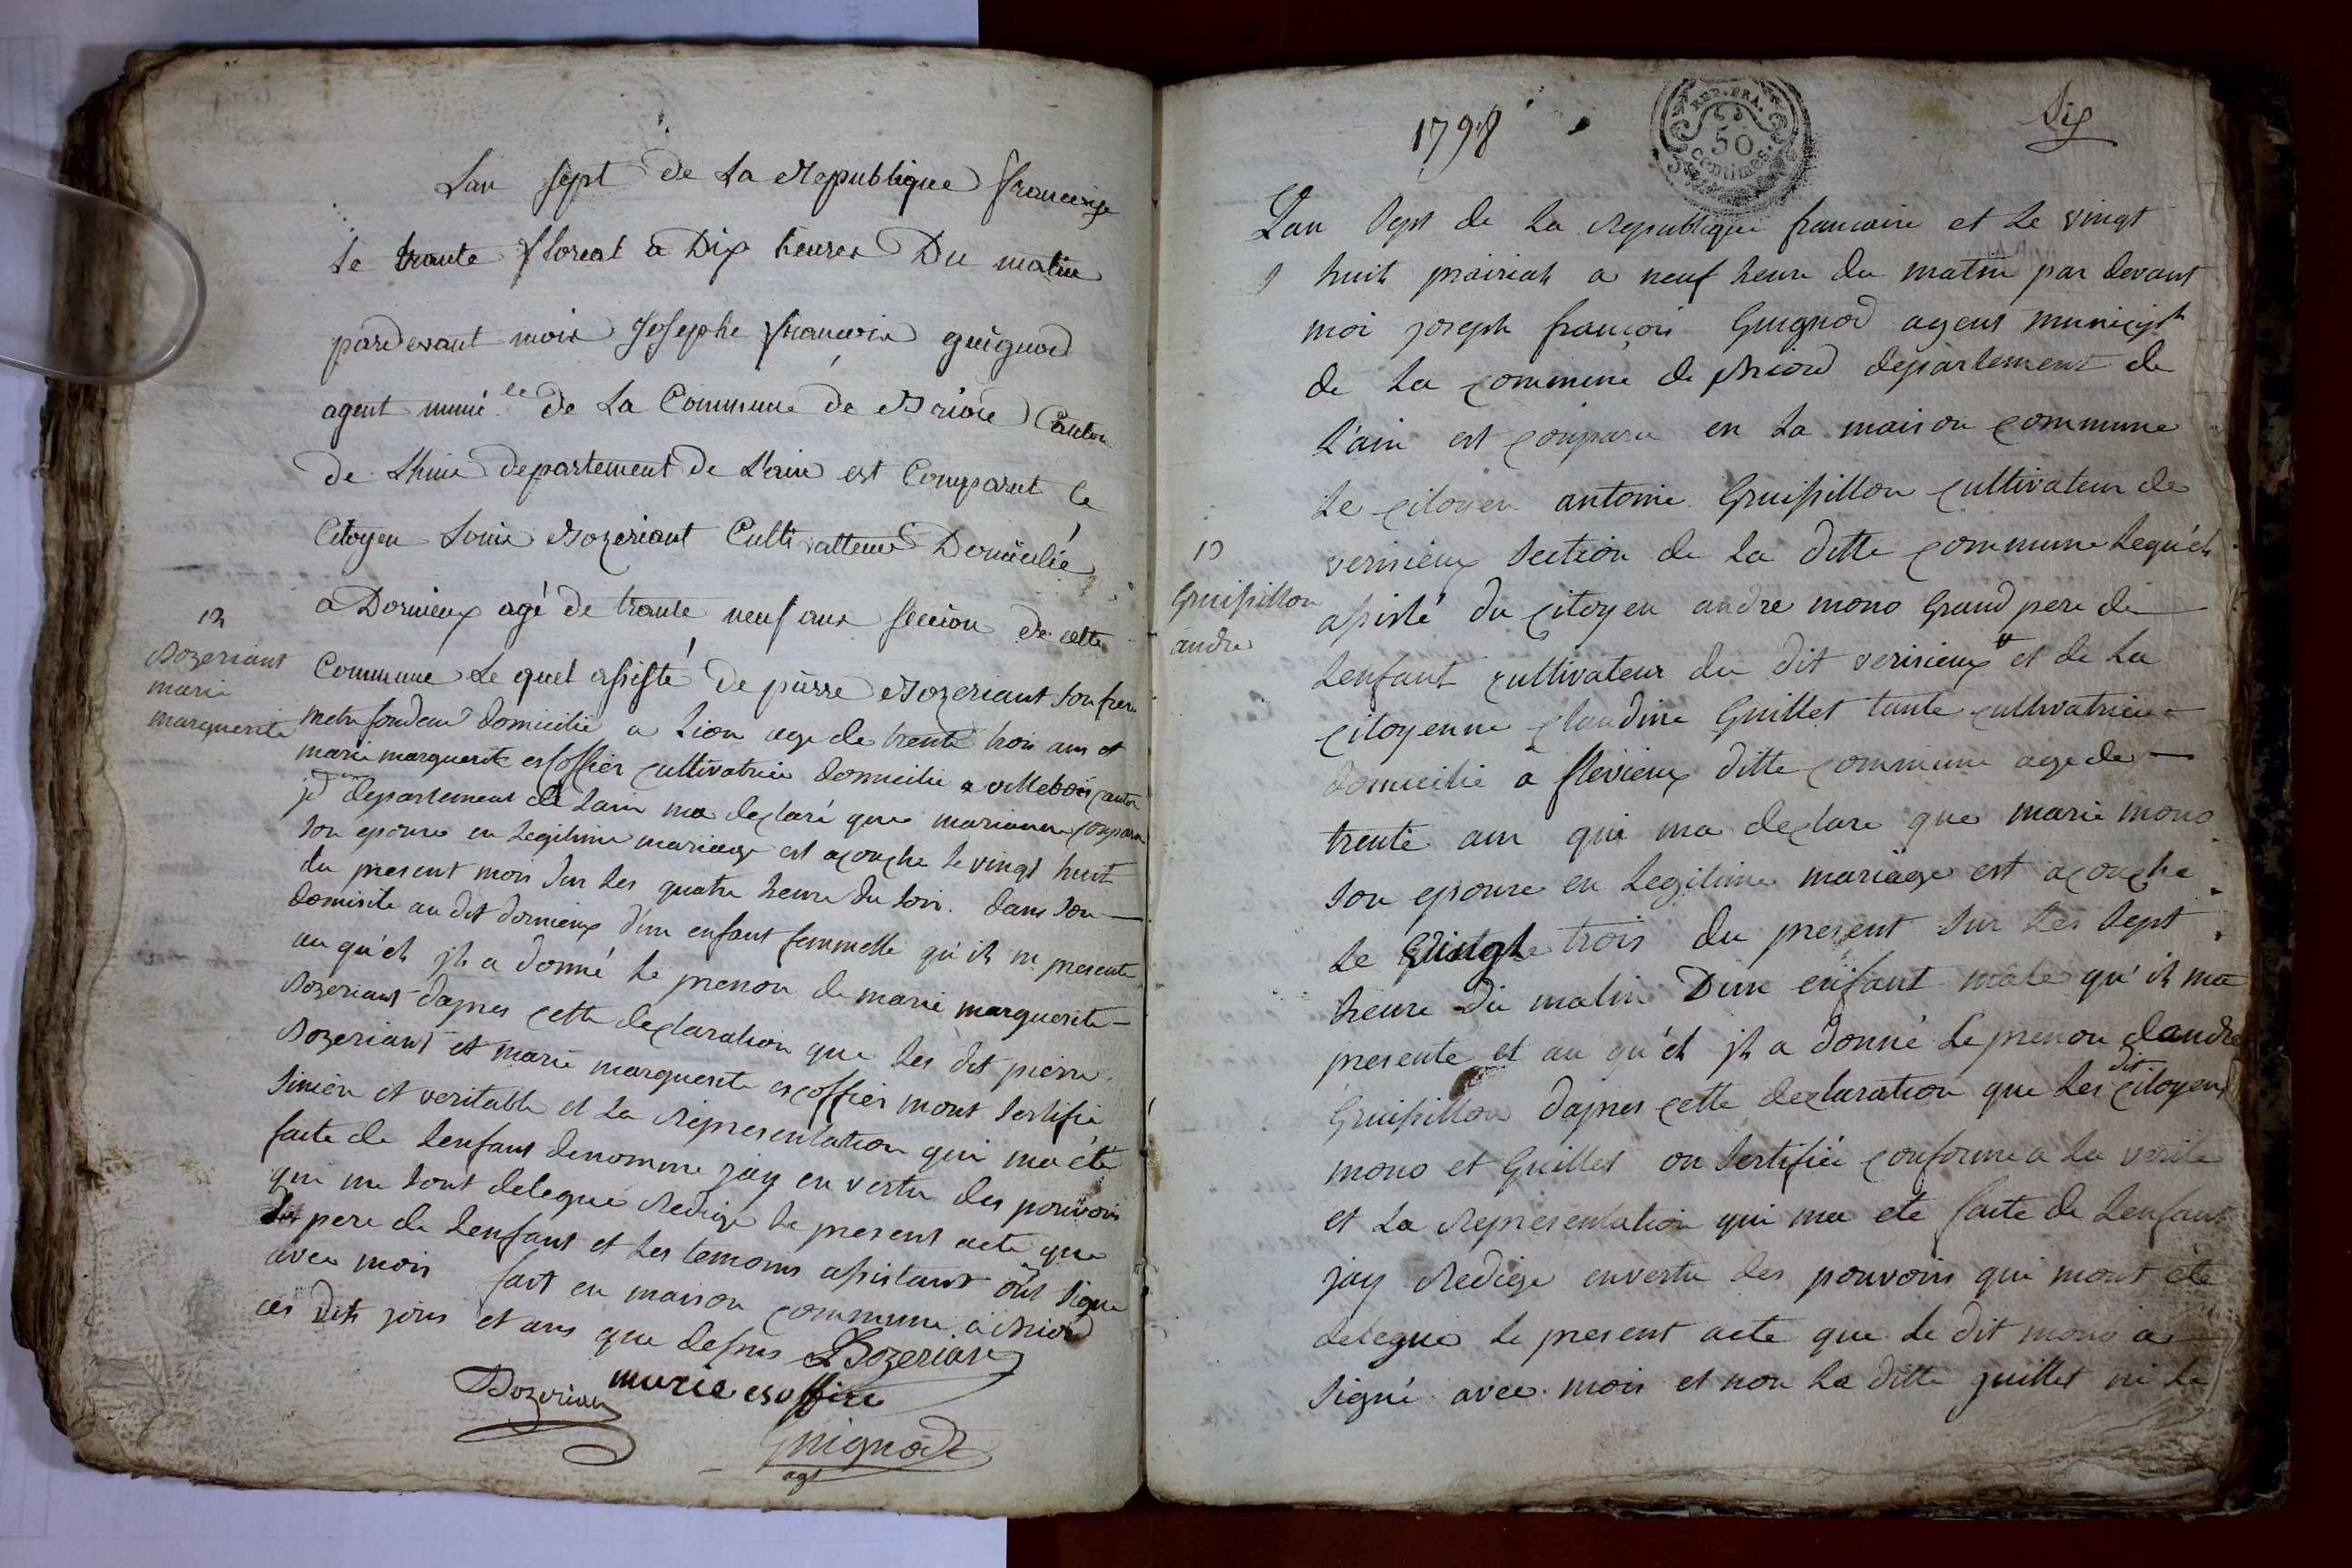 Lan sept de la Republique francaise
le trante floreal a Dix heures Du matin
pardevant mois Josephe francois guignod
agent muni.le de la Commune de Briore Canton
de Lhuis departement de Lain est Comparut le
Citoyen Louis Bozeriant Cultivatteur Domicilié
a Dornieux agé de trante neuf ans section de cette
Commune le quel assisté de pierre Bozeriant son frere
metre fondeur domicilié a Lion age de trente trois ans et
marie marguerite escoffier cultivatrice domicilie a villebois canton
jd departement de Lain ma declaré que marianne
son epouse en Legitime mariage est acouche le vingt huit
du present mois sur les quatre heure du soir. dans son
domicile au dit dornieux d'un enfant femmelle qu'il m presente
au qu'el jl a donné le prenon de marie marguerite
Bozeriant dapres cette declaration que les dit pierre
Bozeriant et marie marguerite escoffier mont sertifie
sinsere et veritable et la Representation qui ma été
faite de lenfant denomme jay en vertu des pouvoirs
qui me sont delegué Redige le present acte que
le pere de lenfant et les temoins assistant ont signe
avec mois fait en maison commune a Briord
les dits jours et ans que dessus L Bozerian
Bozerian marie esoffier
Guignod
agt
12
Bozeriant
marie
marguerite
1798
REP. FRA.
50
centimes
Dix
Lan sept de la Republique francaise et le vingt
huit prairial a neuf heure du matin par devant
moi joseph françois Guignod agent municipl
de la commune de Briord département de
L'ain est comparu en la maison commune
le citoyen antoine Gruissillon cultivateur de
verisieux section de la ditte commune lequ'el
assisté du citoyen andre mono Grand pere de
lenfant cultivateur du dit verisieux et de la
citoyenne claudine Guillet tante cultivatrice
domicilié a flevieux ditte commune age de
trente ans qui ma declare que marie mono
son epouse en Legitime mariage est acouche
le vingt trois du present sur les sept
heure du matin Dun enfant mâle qu'il ma
presente et au qu'el jl a donné le prenon dandre
Gruissillon dapres cette declaration que les dit citoyens
mono et Guillet on sertifié conforme a la verite
et la Representation qui ma ete faite de lenfant
jay Redige en vertu des pouvoirs qui mont été
delegue le present acte que le dit mono a
signé avec mois et non la ditte guillet ni le
13
Gruissillon
andre